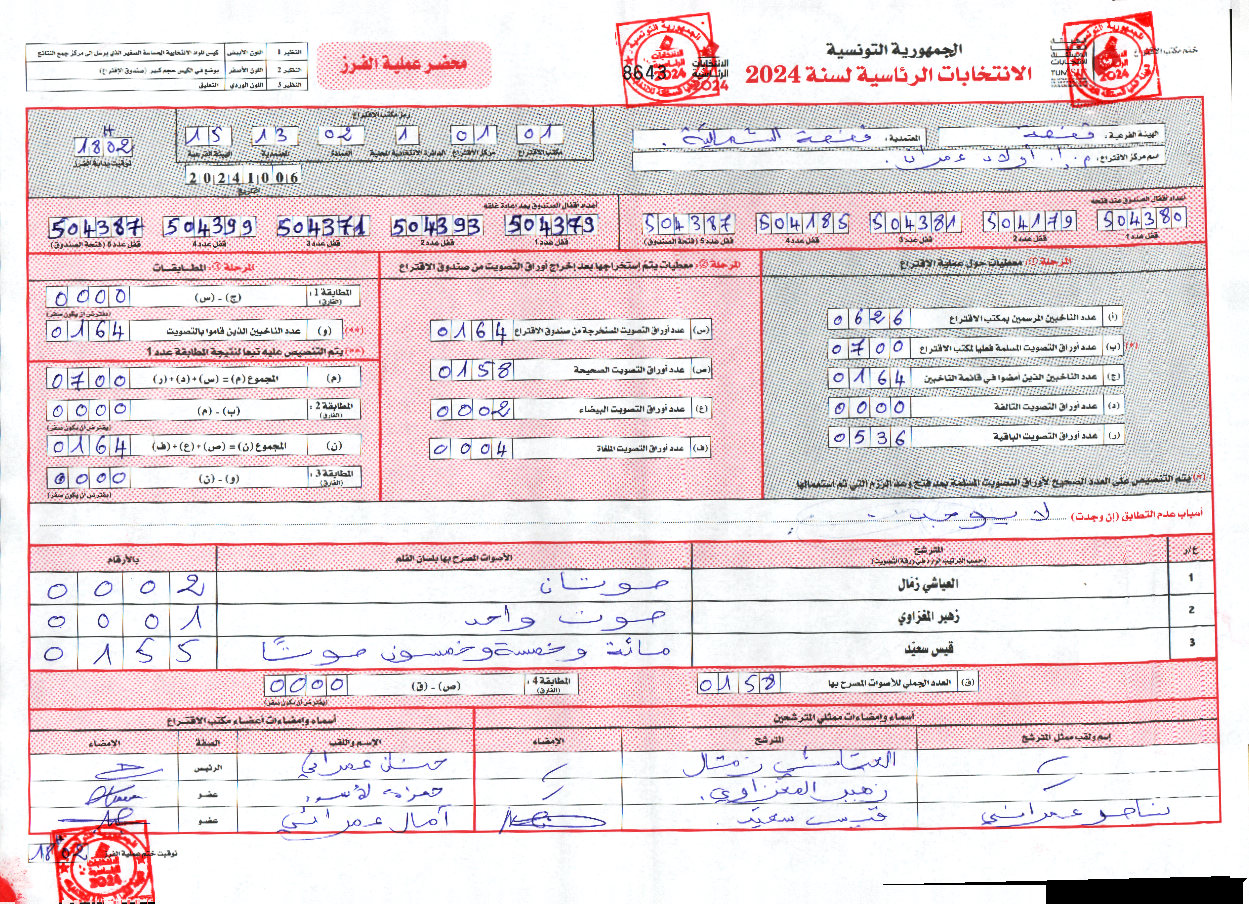 الجمهورية التونسية
الانتخابات الرئاسية لسنة 2024
ختم مكتب الاقتراع
8643
الانتخابات الرئاسية 2024
محضر عملية الفرز
النظير 1 اللون الأبيض كيس المواد الانتخابية الحساسة الصغير الذي يرسل الى مركز جمع النتائج
النظير 2 اللون الأصفر يوضع في الكيس حجم كبير (صندوق الاقتراع)
النظير 3 اللون الوردي التعليق
الهيئة الفرعية : قفصة
المعتمدية : قفصة الشمالية
اسم مركز الاقتراع : م.إ. أولاد عمران
رمز مكتب الاقتراع
01 01 1 02 13 15
مكتب الاقتراع مركز الاقتراع الدائرة الانتخابية المحلية العمادة المعتمدية الهيئة الفرعية
20241006
التاريخ
18H02
توقيت بداية الفرز
أعداد أقفال الصندوق عند فتحه
504380 504179 504381 504185 504387
قفل عدد 1 قفل عدد 2 قفل عدد 3 قفل عدد 4 قفل عدد 5 (فتحة الصندوق)
أعداد أقفال الصندوق بعد إعادة غلقه
504379 504393 504371 504399 504387
قفل عدد 1 قفل عدد 2 قفل عدد 3 قفل عدد 4 قفل عدد 5 (فتحة الصندوق)
المرحلة ①: معطيات حول عملية الاقتراع
(أ) عدد الناخبين المرسمين بمكتب الاقتراع 0626
(*) (ب) عدد أوراق التصويت المسلمة فعليا لمكتب الاقتراع 0700
(ج) عدد الناخبين الذين امضوا في قائمة الناخبين 0164
(د) عدد أوراق التصويت التالفة 0000
(ر) عدد أوراق التصويت الباقية 0536
(*) يتم التنصيص على العدد الصحيح لأوراق التصويت المسلمة بعد فتح وعد الرزم التي تم استعمالها
المرحلة ②: معطيات يتم إستخراجها بعد إخراج أوراق التصويت من صندوق الاقتراع
(س) عدد أوراق التصويت المستخرجة من صندوق الاقتراع 0164
(ص) عدد أوراق التصويت الصحيحة 0158
(ع) عدد أوراق التصويت البيضاء 0002
(ف) عدد أوراق التصويت الملغاة 0004
المرحلة ③: المطابقات
المطابقة 1 : (الفارق) (ج) - (س) 0000
(يفترض أن يكون صفر)
(**) (و) عدد الناخبين الذين قاموا بالتصويت 0164
(**) يتم التنصيص عليه تبعا لنتيجة المطابقة عدد 1
(م) المجموع (م) = (س) + (د) + (ر) 0700
المطابقة 2 : (الفارق) (ب) - (م) 0000
(يفترض أن يكون صفر)
(ن) المجموع (ن) = (ص) + (ع) + (ف) 0164
المطابقة 3 : (الفارق) (و) - (ن) 0000
(يفترض أن يكون صفر)
أسباب عدم التطابق (إن وجدت) لا يوجد
ع/ر المترشح (حسب الترتيب الوارد في ورقة التصويت) الأصوات المصرح بها بلسان القلم بالأرقام
1 العياشي زمّال صوتان 0002
2 زهير المغزاوي صوت واحد 0001
3 قيس سعيّد مائة وخمسة وخمسون صوتًا 0155
(ق) العدد الجملي للأصوات المصرح بها 0158
المطابقة 4 : (الفارق) (ص) - (ق) 0000
(يفترض أن يكون صفر)
أسماء وإمضاءات ممثلي المترشحين
إسم ولقب ممثل المترشح المترشح الإمضاء
العياشي زمال
زهير المغزاوي
ناجو عمراني قيس سعيد
أسماء وإمضاءات أعضاء مكتب الاقتراع
الإسم واللقب الصفة الإمضاء
حنان عمراني الرئيس
حمزة لأسود عضو
آمال عمراني عضو
توقيت ختم عملية الفرز